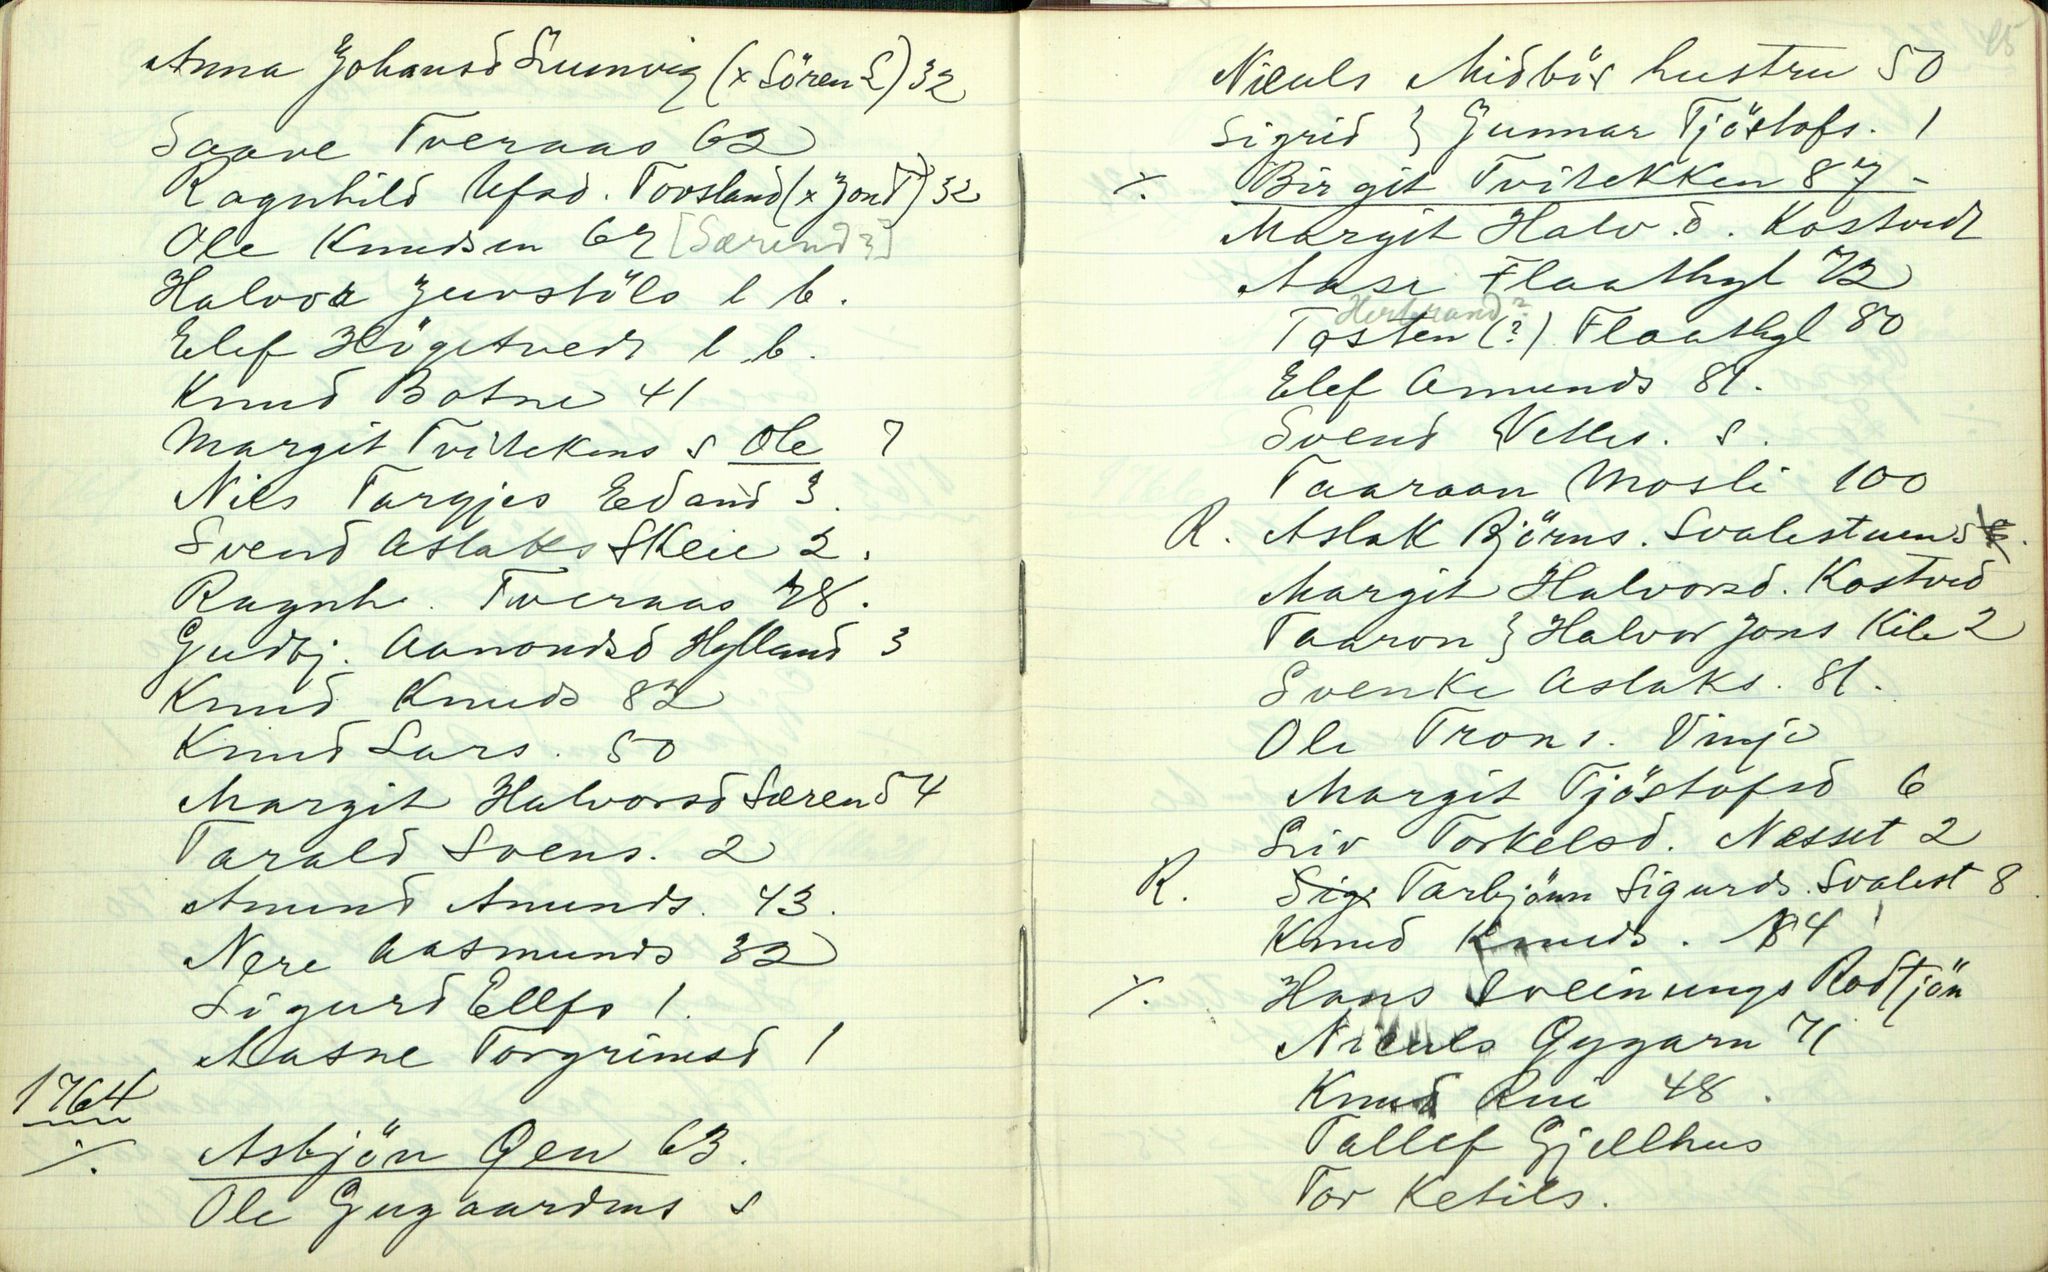 Anna Johansd Lunnvig (x Sören L) 32
Saave Tveraas 62
Ragnhild Ufsd. Torsland (x Jon T) 32
Ole Knudsen 62 [Særend 3]
Halvor Juvstöls l b.
Elef Högetvedt l b.
Knud Botne 41
Margit Tvitekens s Ole 7
Nils Targjes Edand 3.
Svend Aslaks Skeie 2.
Ragnh. Tveraas 78.
Gudbj. Aamondsd Hylland 3
Knud Knuds 82
Knud Lars. 50
Margit Halvorsd Særend 4
Tarald Svens. 2
Amund Amunds. 43.
Nere Aasmunds 32
Sigurd Ellfs 1.
Aasne Torgrimsd 1
1764
·/. Asbjön Qen 63.
Ole Gugaardens s
95
Niculs Midbös hustru 50
Sigrid } Gunnar Tjöstofs. 1
·/. Birgit Tvitekken 87 -
Margit Halv.d. Kostvedt
Aase Flaathyl 72
Herbrand?
Tosten (?) Flaathyl 80
Elef Amunds 81.
Svend Vetles. s.
Taaraan Mosli 100
R. Aslak Björns. Svalestuen 5
Margit Halvorsd. Kostved
Taaron } Halvor Jons Kile 2
Svenke Aslaks. 81.
Ole Trons. Vinje
Margit Tjöstofsd 6
Liv Torkelsd. Næsset 2
R. Sig Tarbjönn Sigurds. Svalest 8
Knud Knuds. 84
·/. Hans Sveinungs Rodtjön
Niculs Gygarn 71
Knud Rui 48.
Tallef Gjellhus
Tor Ketils.